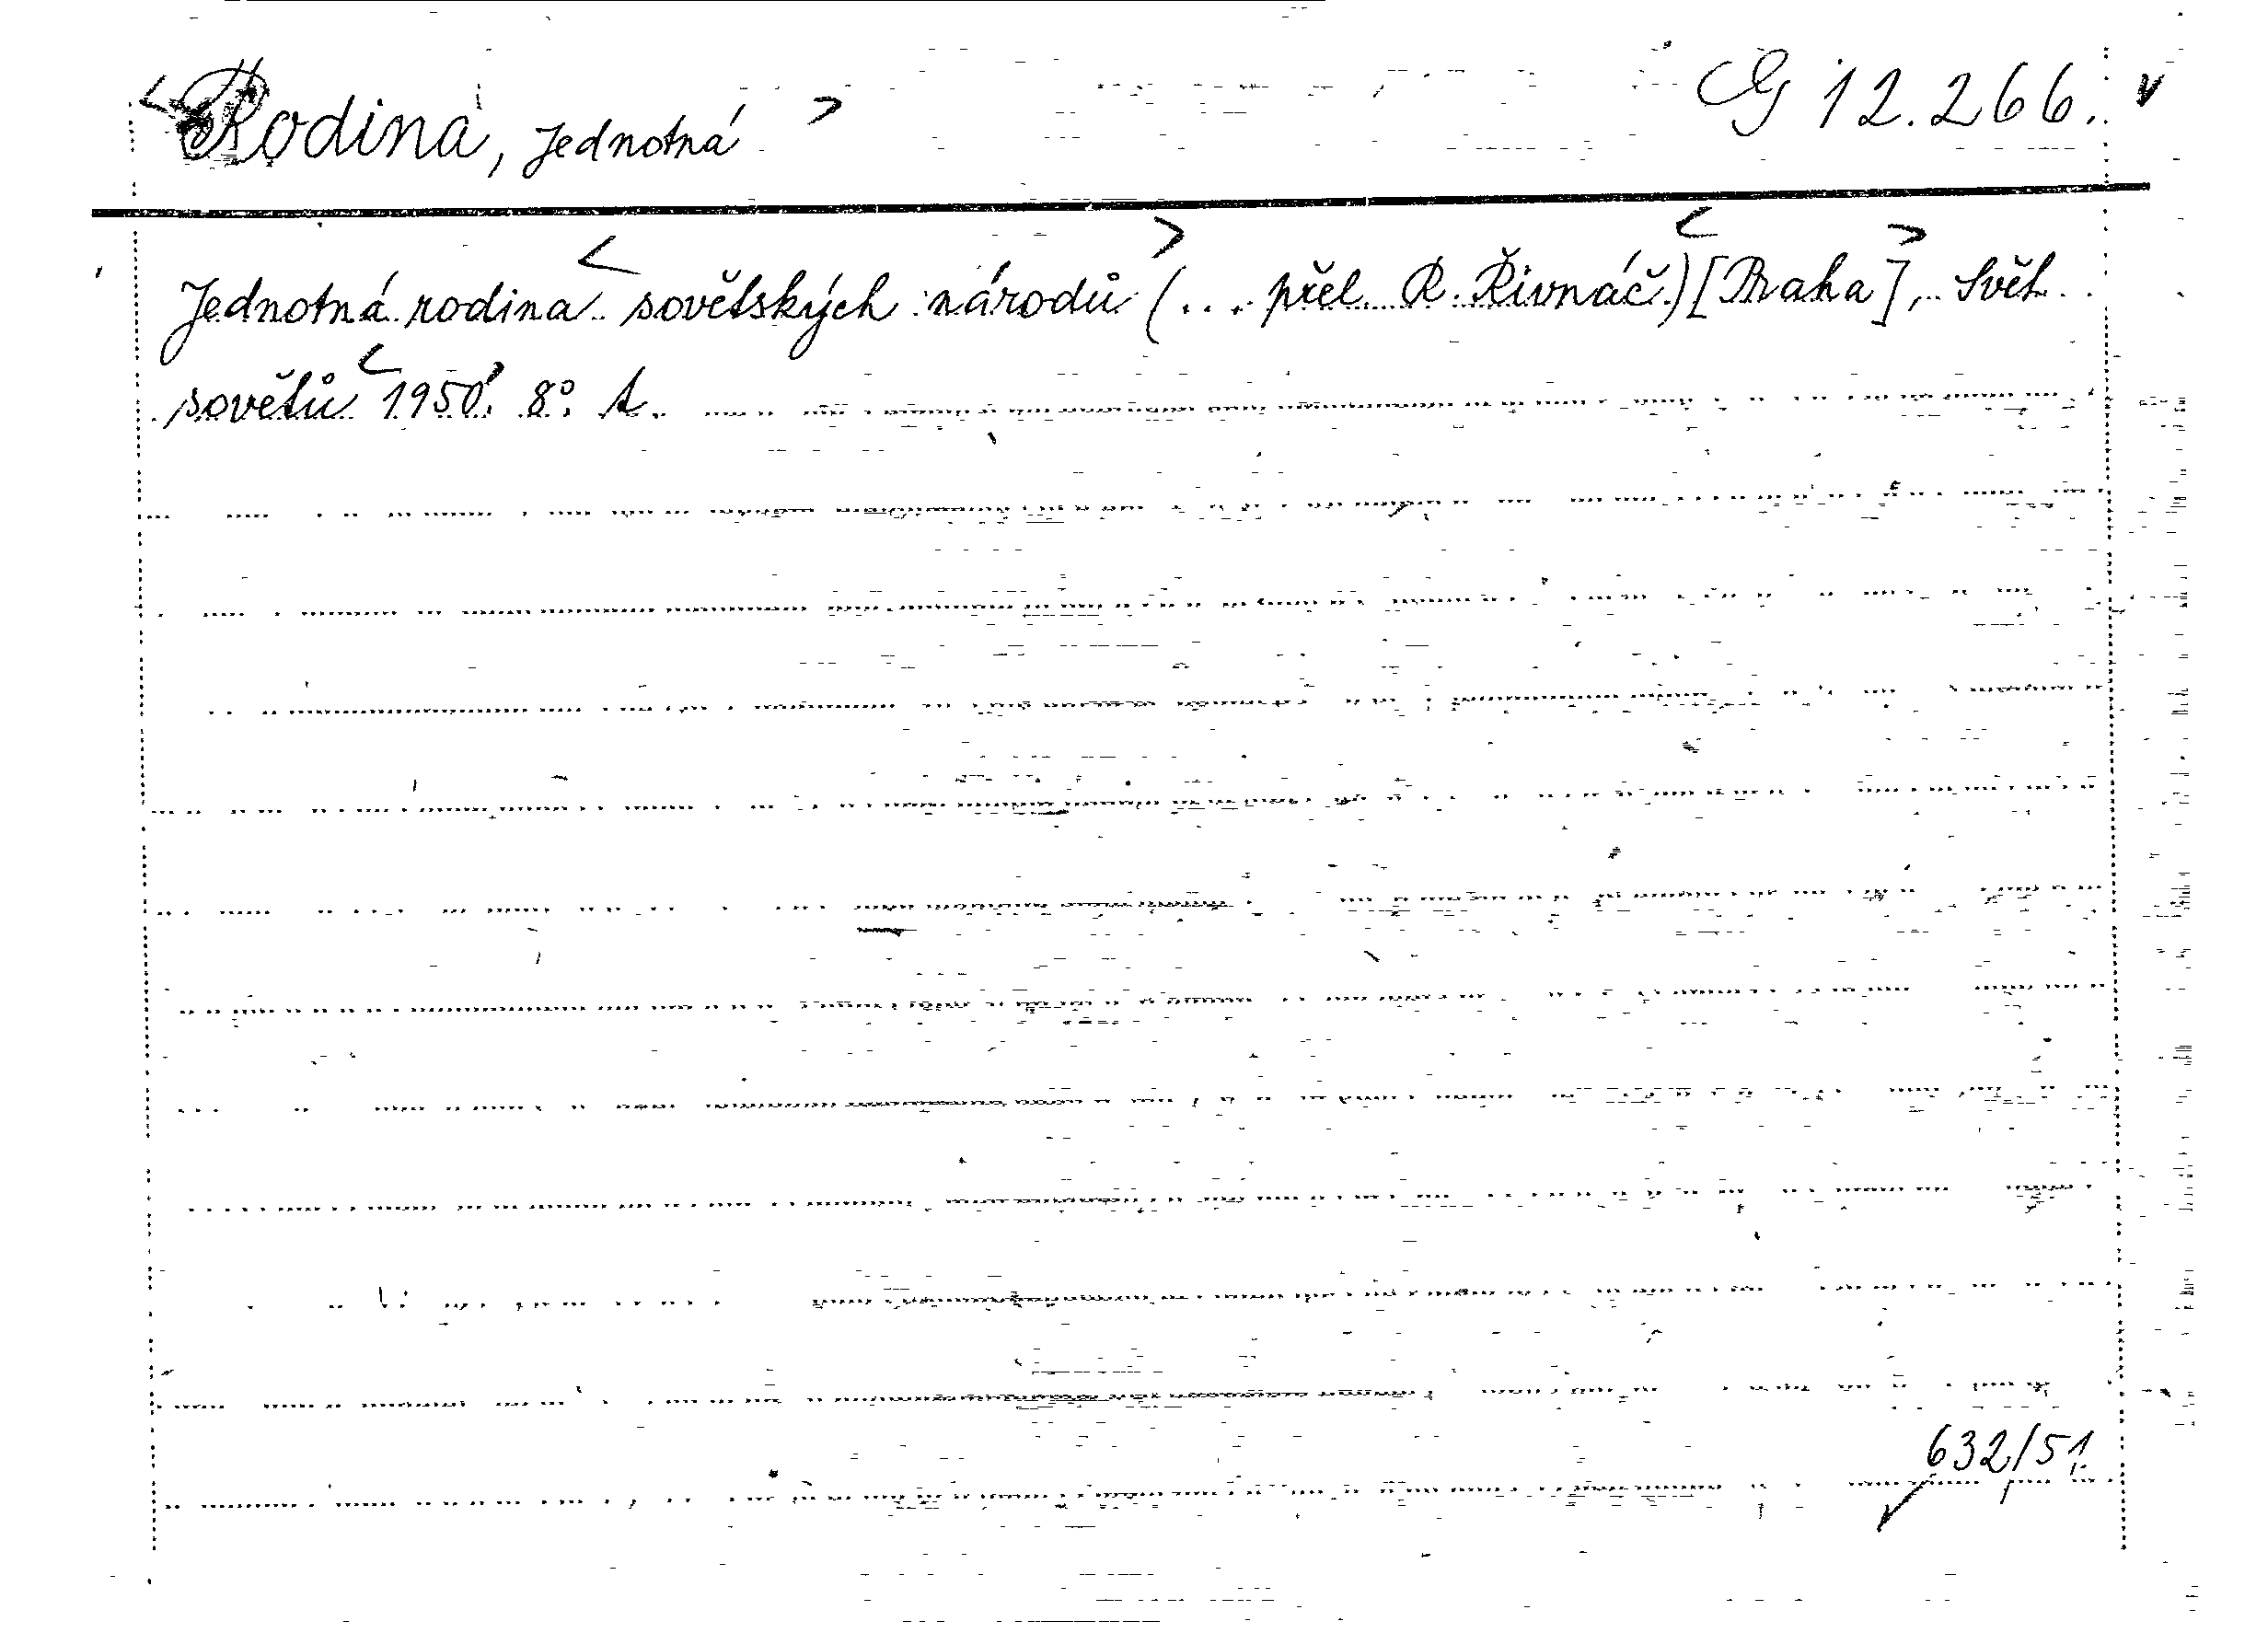 Rodina, Jednotná G 12.266.
Jednotná rodina sovětských národů (... přel. R. Řivnáč.) [Praha], Svět
sovětů 1950. 8°. t.
632/51.